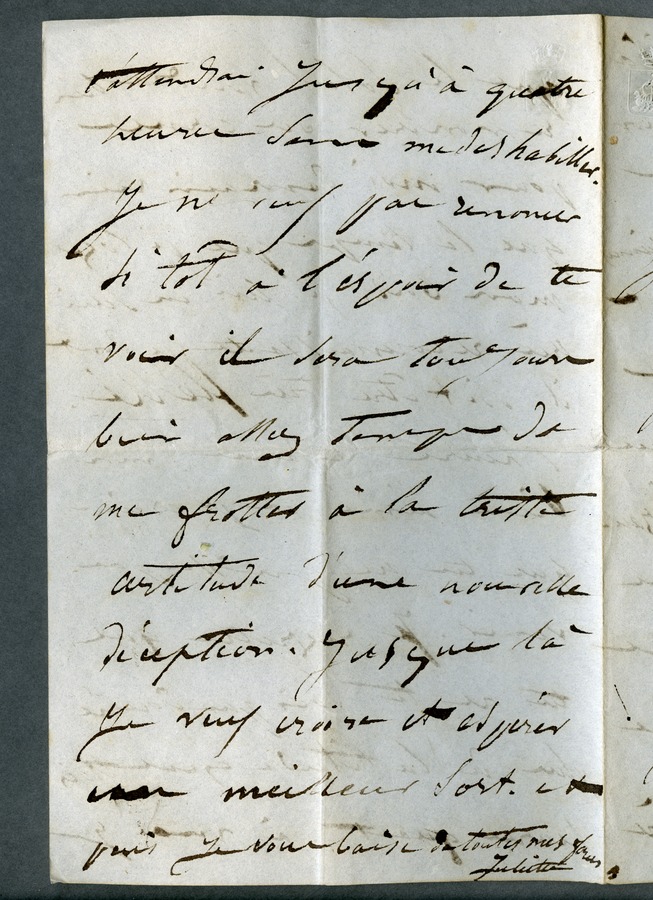 t'attendrai jusqu'à quatre
heures sans me deshabiller.
Je ne veux pas renoncer
si tôt à l'éspoir de te
voir il sera toujours
bien assez temps de
me frotter à la triste
certitude d'une nouvelle
déception. Jusque là
je veux croire et espérer
un meilleur sort. et
puis je vous baise de toutes mes forces
Juliette